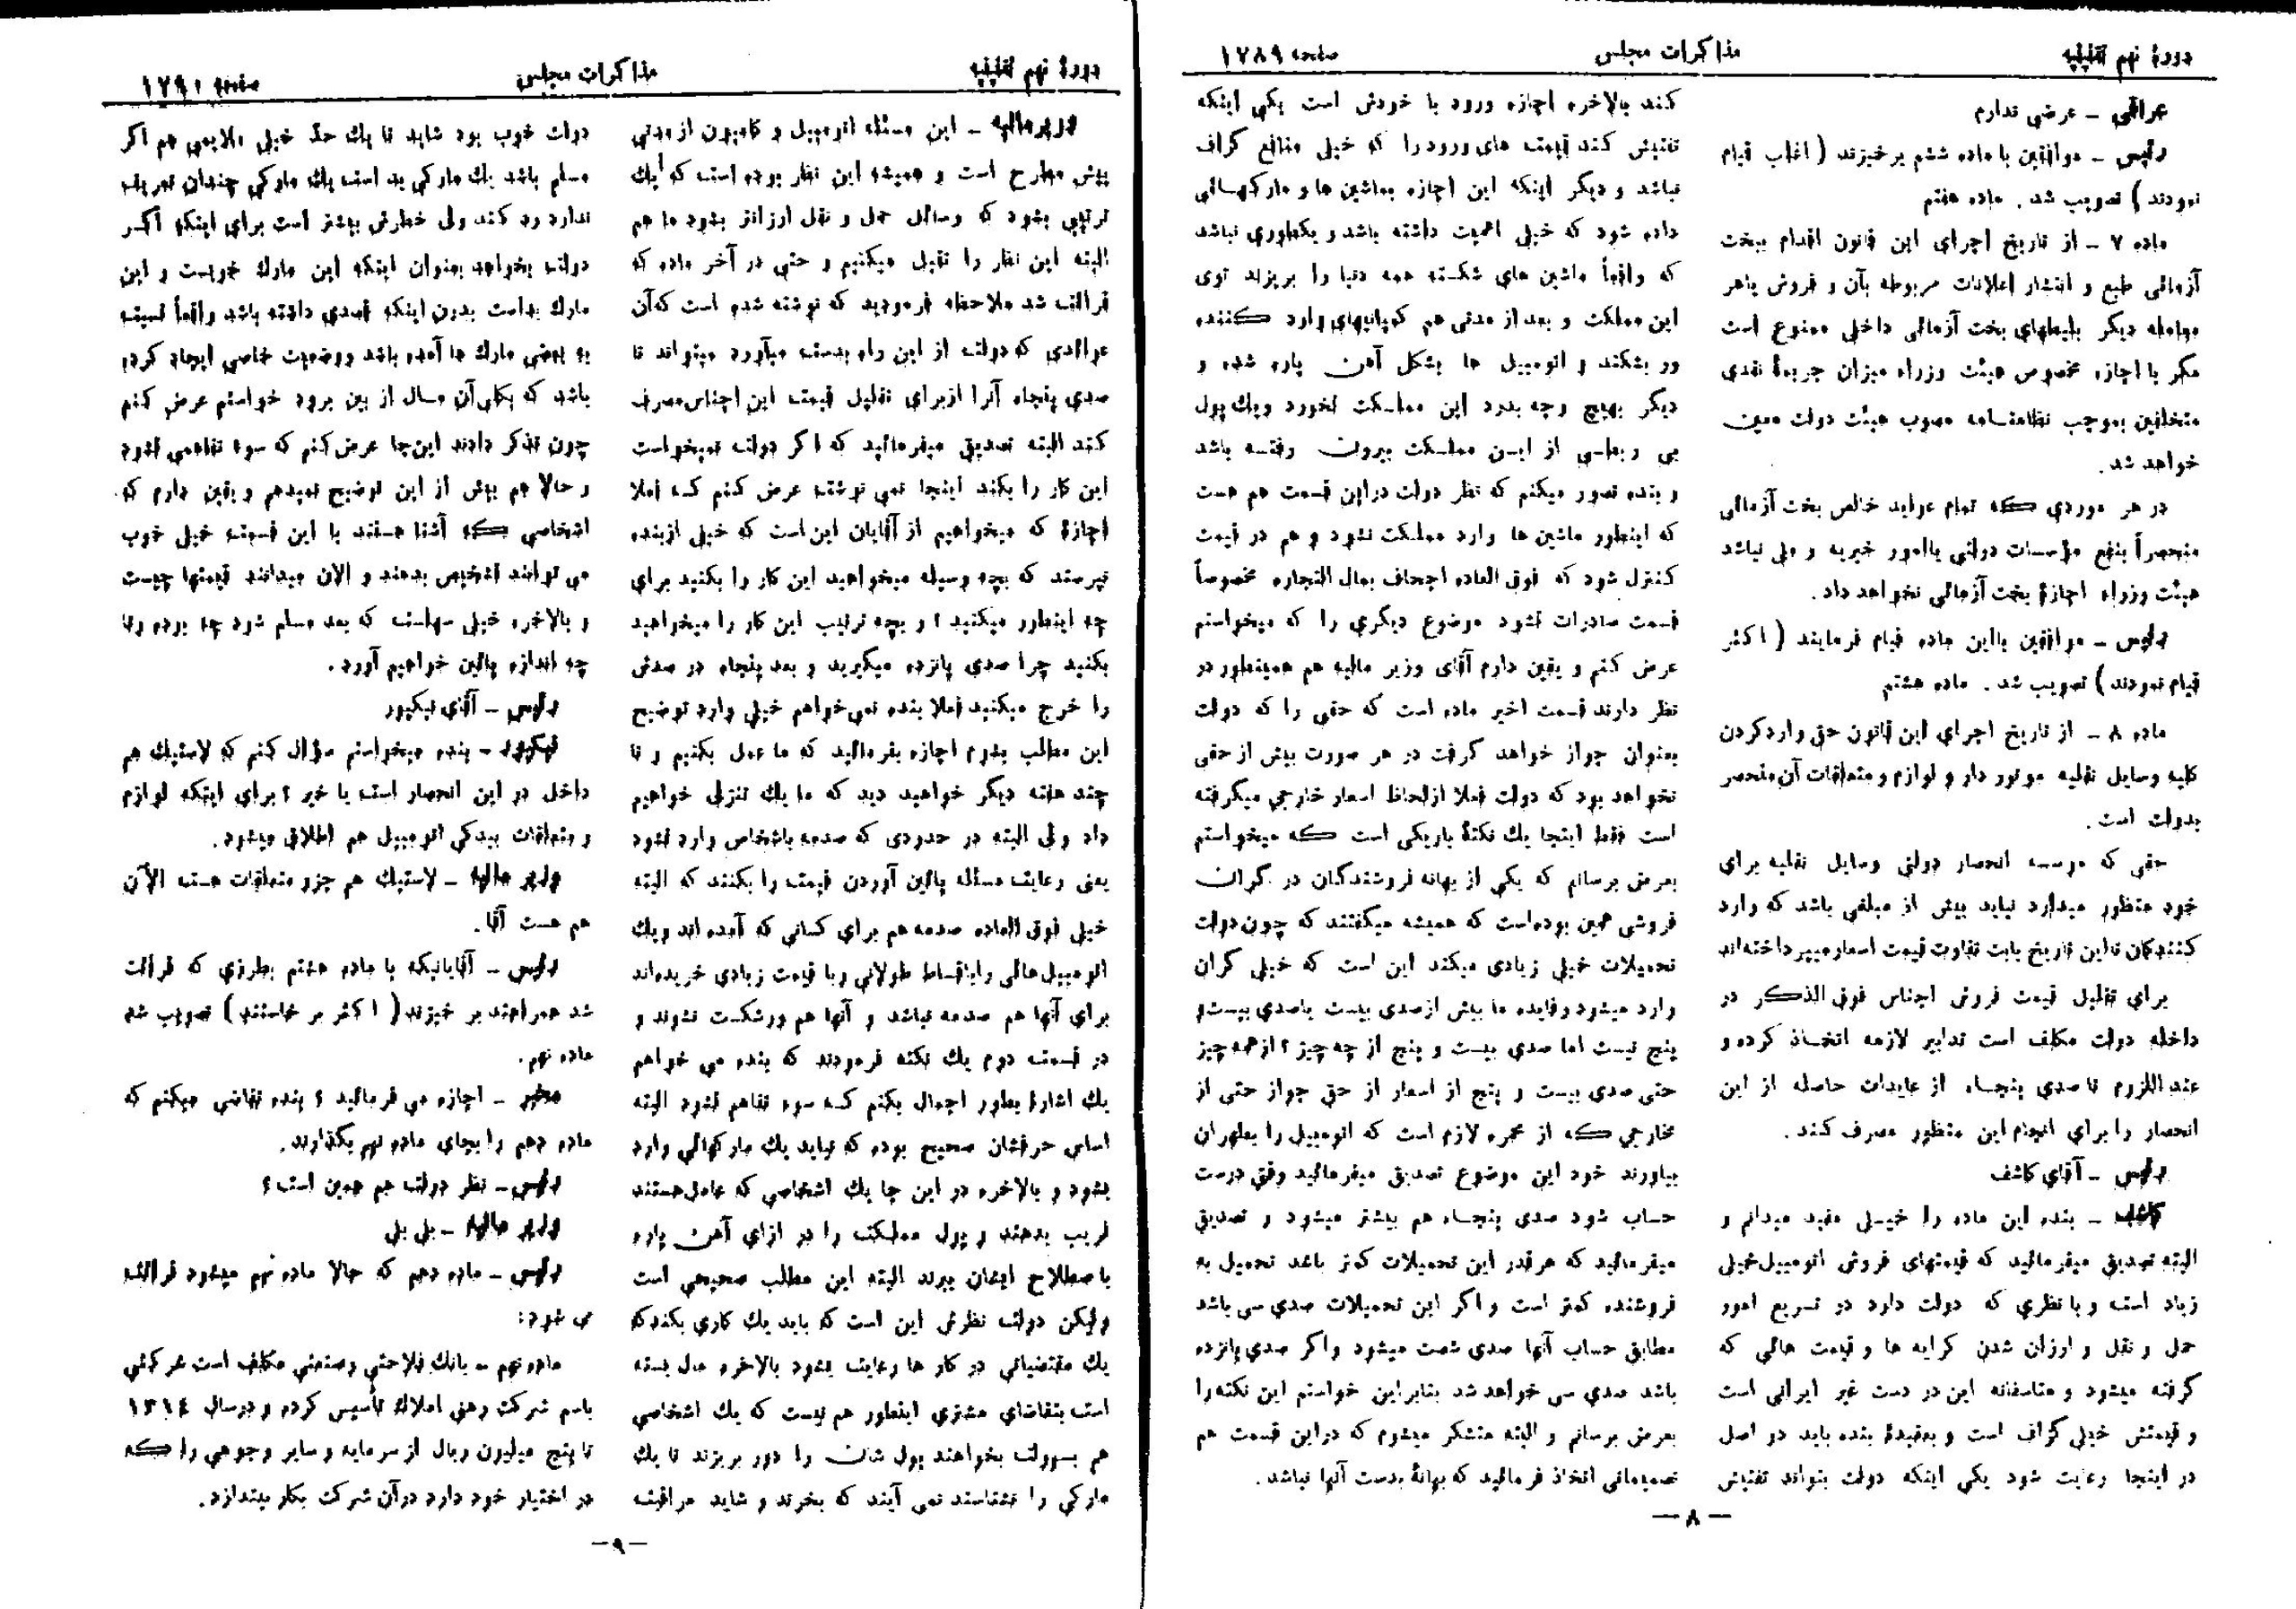 دورهٔ نهم تقنینیه
مذاکرات مجلس
صفحه ۱۷۸۹
عراقی - عرضی ندارم
رئیس - موافقین با ماده ششم برخیزند ( اغلب قیام
نمودند ) تصویب شد . ماده هفتم
ماده ۷ - از تاریخ اجرای این قانون اقدام ببخت
آزمائی طبع و انتشار اعلانات مربوطه بآن و فروش یاهر
معامله دیگر بلیطهای بخت آزمائی داخلی ممنوع است
مگر با اجازه مخصوص هیئت وزراء میزان جریمهٔ نقدی
متخلفین بموجب نظامنامه مصوب هیئت دولت معین
خواهد شد .
در هر موردی که تمام عواید خالص بخت آزمائی
منحصراً بنفع مؤسسات دولتی یاامور خیریه و ملی نباشد
هیئت وزراء اجازهٔ بخت آزمائی نخواهد داد .
رئیس - موافقین بااین ماده قیام فرمایند ( اکثر
قیام نمودند ) تصویب شد . ماده هشتم
ماده ۸ - از تاریخ اجرای این قانون حق واردکردن
کلیه وسایل نقلیه موتور دار و لوازم و متعلقات آن منحصر
بدولت است .
حقی که موسسه انحصار دولتی وسایل نقلیه برای
خود منظور میدارد نباید بیش از مبلغی باشد که وارد
کنندگان تااین تاریخ بابت تفاوت قیمت اسعارمیپرداخته‌اند
برای تقلیل قیمت فروش اجناس فوق الذکر در
داخله دولت مکلف است تدابیر لازمه اتخاذ کرده و
عند اللزوم تا صدی پنجاه از عایدات حاصله از این
انحصار را برای انجام این منظور مصرف کند .
رئیس - آقای کاشف
کاشف - بنده این ماده را خیلی مفید میدانم و
البته تصدیق میفرمائید که قیمتهای فروش اتومبیل خیلی
زیاد است و با نظری که دولت دارد در تسریع امور
حمل و نقل و ارزان شدن کرایه ها و قیمت هائی که
گرفته میشود و متاسفانه این در دست غیر ایرانی است
و قیمتش خیلی گزاف است و بعقیدهٔ بنده باید دو اصل
در اینجا رعایت شود یکی اینکه دولت بتواند تفتیش
کند بالاخره اجازه ورود با خودش است یکی اینکه
تفتیش کند قیمت های ورود را که خیلی منافع گزاف
نباشد و دیگر اینکه این اجازه بماشین ها و مارکهائی
داده شود که خیلی اهمیت داشته باشد و یکطوری نباشد
که واقعاً ماشین های شکسته همه دنیا را بریزند توی
این مملکت و بعد از مدتی هم کمپانیهای وارد کننده
ور بشکند و اتومبیل ها بشکل آهن پاره شده و
دیگر بهیچ وجه بدرد این مملکت نخورد ویك پول
بی ربطی از این مملکت بیرون رفته باشد
و بنده تصور میکنم که نظر دولت دراین قسمت هم هست
که اینطور ماشین ها وارد مملکت نشود و هم در قیمت
کنترل شود که فوق العاده اجحاف بمال التجاره مخصوصاً
قسمت صادرات نشود موضوع دیگری را که میخواستم
عرض کنم و یقین دارم آقای وزیر مالیه هم همینطور در
نظر دارند قسمت اخیر ماده است که حقی را که دولت
بعنوان جواز خواهد گرفت در هر صورت بیش از حقی
نخواهد بود که دولت فعلا ازلحاظ اسعار خارجی میگرفته
است فقط اینجا یك نکتهٔ باریکی است که میخواستم
بعرض برسانم که یکی از بهانه فروشندگان در گران
فروشی همین بوده‌است که همیشه میگفتند که چون دولت
تحمیلات خیلی زیادی میکند این است که خیلی گران
وارد میشود وفایده ما بیش ازصدی بیست یاصدی بیست و
پنج نیست اما صدی بیست و پنج از چه چیز ؟ ازهمه چیز
حتی صدی بیست و پنج از اسعار از حق جواز حتی از
مخارجی که از محمره لازم است که اتومبیل را بطهران
بیاورند خود این موضوع تصدیق میفرمائید وقتی درست
حساب شود صدی پنجاه هم بیشتر میشود و تصدیق
میفرمائید که هرقدر این تحمیلات کمتر باشد تحمیل به
فروشنده کمتر است و اگر این تحمیلات صدی سی باشد
مطابق حساب آنها صدی شصت میشود واگر صدی پانزده
باشد صدی سی خواهد شد بنابراین خواستم این نکته را
بعرض برسانم و البته متشکر میشوم که دراین قسمت هم
تصمیماتی اتخاذ فرمائید که بهانهٔ بدست آنها نباشد .
— ۸ —
دورهٔ نهم تقنینیه
مذاکرات مجلس
صفحه ۱۷۹۰
وزیر مالیه - این مسئله اتومبیل و کامیون ازمدتی
پیش مطرح است و همیشه این نظر بوده است که یك
ترتیبی بشود که وسائل حمل و نقل ارزانتر بشود ما هم
البته این نظر را تقبل میکنیم و حتی در آخر ماده که
قرائت شد ملاحظه فرمودید که نوشته شده است که‌آن
عوائدی که دولت از این راه بدست میآورد میتواند تا
صدی پنجاه آنرا ازبرای تقلیل قیمت این اجناس مصرف
کند البته تصدیق میفرمائید که اگر دولت نمیخواست
این کار را بکند اینجا نمی نوشت عرض کنم که فعلا
اجازهٔ که میخواهیم از آقایان این است که خیلی ازبنده
نپرسند که بچه وسیله میخواهید این کار را بکنید برای
چه اینطور میکنید ؟ و بچه ترتیب این کار را میخواهید
بکنید چرا صدی پانزده میگیرید و بعد پنجاه در صدش
را خرج میکنید فعلا بنده نمی‌خواهم خیلی وارد توضیح
این مطالب بشوم اجازه بفرمائید که ما عمل بکنیم و تا
چند هفته دیگر خواهید دید که ما یك تنزلی خواهیم
داد ولی البته در حدودی که صدمه باشخاص وارد نشود
یعنی رعایت مسئله پائین آوردن قیمت را بکنند که البته
خیلی فوق العاده صدمه هم برای کسانی که آمده اند ویك
اتومبیل هائی را باقساط طولانی وبا قیمت زیادی خریده‌اند
برای آنها هم صدمه نباشد و آنها هم ورشکست نشوند و
در قسمت دوم یك نکته فرمودند که بنده می خواهم
یك اشارهٔ بطور اجمال بکنم که سوء تفاهم نشود البته
اساس حرفشان صحیح بوده که نباید یك مارکهائی وارد
بشود و بالاخره در این جا یك اشخاصی که عامل هستند
فریب بدهند و پول مملکت را در ازای آهن پاره
باصطلاح ایشان ببرند البته این مطلب صحیحی است
ولیکن دولت نظرش این است که باید یك کاری بکند که
یك مقتضیاتی در کار ها رعایت بشود بالاخره حال بسته
است بتقاضای مشتری اینطور هم نیست که یك اشخاصی
هم بسهولت بخواهند پول شان را دور بریزند تا یك
مارکی را نشناسند نمی آیند که بخرند و شاید مراقبت
دولت خوب بود شاید تا یك حدّ خیلی ملایمی هم اگر
مسلم باشد یك مارکی بد است یك مارکی چندان تعریف
ندارد رد کند ولی خطرش بیشتر است برای اینکه اگر
دولت بخواهد بعنوان اینکه این مارك خوبست و این
مارك بداست بدون اینکه قصدی داشته باشد واقعاً نسبت
به بعضی مارك ها آمده باشد ووضعیت خاصی ایجاد کرده
باشد که بکلی‌آن مسال از بین برود خواستم عرض کنم
چون تذکر دادند این‌جا عرض کنم که سوء تفاهمی نشود
و حالا هم بیش از این توضیح نمیدهم و یقین دارم که
اشخاصی که آشنا هستند با این قسمت خیلی خوب
می توانند تشخیص بدهند و الان میدانند قیمتها چیست
و بالاخره خیلی سهل‌است که بعد مسلم شود چه بوده وتا
چه اندازه پائین خواهیم آورد .
رئیس - آقای نیکپور
نیکپور - بنده میخواستم سؤال کنم که لاستیك هم
داخل در این انحصار است یا خیر ؟ برای اینکه لوازم
و متعلقات بیدکی اتومبیل هم اطلاق میشود .
وزیر مالیه - لاستیك هم جزو متعلقات هست الآن
هم هست آقا .
رئیس - آقایانیکه با ماده هشتم بطرزی که قرائت
شد همراهند بر خیزند ( اکثر بر خاستند ) تصویب شد
ماده نهم .
مخبر - اجازه می فرمائید ؟ بنده تقاضی میکنم که
ماده دهم را بجای ماده نهم بگذارند .
رئیس - نظر دولت هم همین است ؟
وزیر مالیه - بلی بلی
رئیس - ماده دهم که حالا ماده نهم میشود قرائت
می شود :
ماده نهم - بانك فلاحتی وصنعتی مکلف است شرکتی
باسم شرکت رهنی املاك تأسیس کرده و درسال ۱۳۱۴
تا پنج میلیون ریال از سرمایه و سایر وجوهی را که
در اختیار خود دارد درآن شرکت بکار بیندازد .
— ۹ —